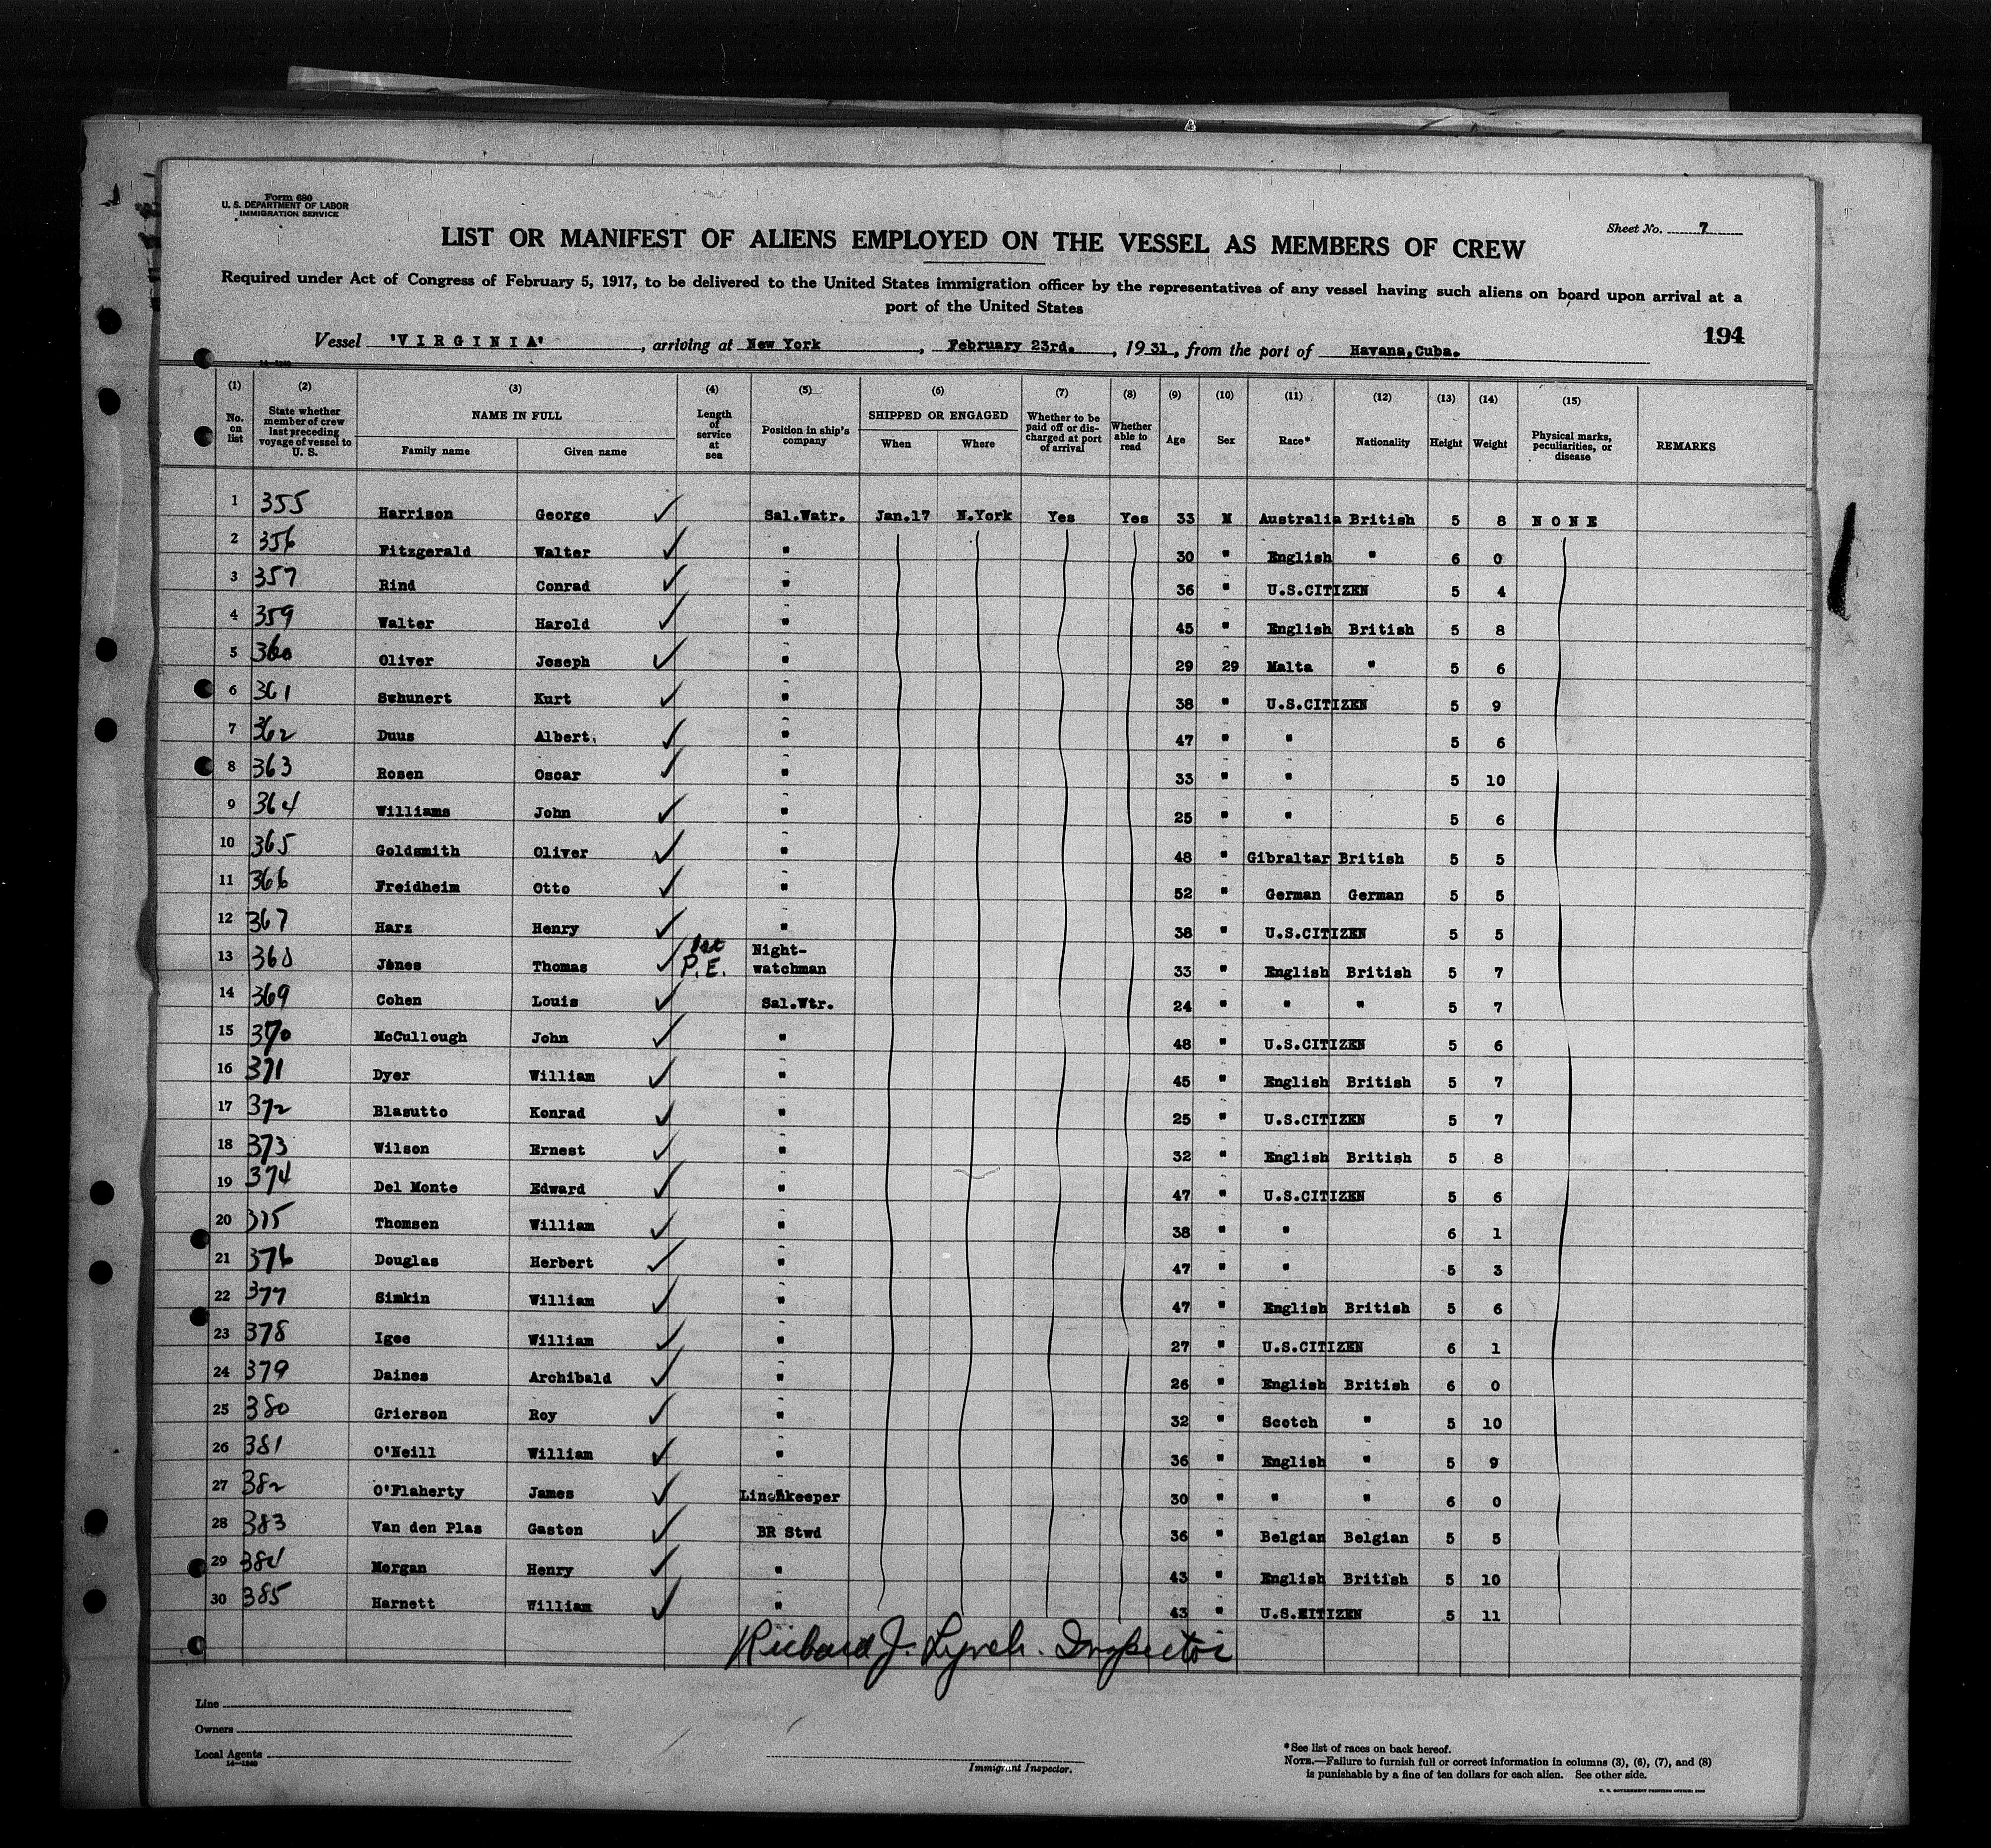 Form 680
U. S. DEPARTMENT OF LABOR
IMMIGRATION SERVICE
Sheet No. 7
LIST OR MANIFEST OF ALIENS EMPLOYED ON THE VESSEL AS MEMBERS OF CREW
Required under Act of Congress of February 5, 1917, to be delivered to the United States immigration officer by the representatives of any vessel having such aliens on board upon arrival at a
port of the United States
194
Vessel 'VIRGINIA', arriving at New York, February 23rd., 1931, from the port of Havana,Cuba.
14—1240
(1) (2) (3) (4) (5) (6) (7) (8) (9) (10) (11) (12) (13) (14) (15)
No. on list State whether member of crew last preceding voyage of vessel to U. S. NAME IN FULL Family name Given name Length of service at sea Position in ship's company SHIPPED OR ENGAGED When Where Whether to be paid off or discharged at port of arrival Whether able to read Age Sex Race* Nationality Height Weight Physical marks, peculiarities, or disease REMARKS
1 355 Harrison George ✓ Sal.Watr. Jan.17 N.York Yes Yes 33 M Australia British 5 8 NONE
2 356 Fitzgerald Walter ✓ " 30 " English " 6 0
3 357 Rind Conrad ✓ " 36 " U.S.CITIZEN 5 4
4 359 Walter Harold ✓ " 45 " English British 5 8
5 360 Oliver Joseph ✓ " 29 29 Malta " 5 6
6 361 Schunert Kurt ✓ " 38 " U.S.CITIZEN 5 9
7 362 Duus Albert ✓ " 47 " " 5 6
8 363 Rosen Oscar ✓ " 33 " " 5 10
9 364 Williams John ✓ " 25 " " 5 6
10 365 Goldsmith Oliver ✓ " 48 " Gibraltar British 5 5
11 366 Freidheim Otto ✓ " 52 " German German 5 5
12 367 Harz Henry ✓ " 38 " U.S.CITIZEN 5 5
13 368 Jones Thomas ✓ P.E. Night-watchman 33 " English British 5 7
14 369 Cohen Louis ✓ Sal.Wtr. 24 " " " 5 7
15 370 McCullough John ✓ " 48 " U.S.CITIZEN 5 6
16 371 Dyer William ✓ " 45 " English British 5 7
17 372 Blasutto Konrad ✓ " 25 " U.S.CITIZEN 5 7
18 373 Wilson Ernest ✓ " 32 " English British 5 8
19 374 Del Monte Edward ✓ " 47 " U.S.CITIZEN 5 6
20 375 Thomsen William ✓ " 38 " " 6 1
21 376 Douglas Herbert ✓ " 47 " " 5 3
22 377 Simkin William ✓ " 47 " English British 5 6
23 378 Igoe William ✓ " 27 " U.S.CITIZEN 6 1
24 379 Daines Archibald ✓ " 26 " English British 6 0
25 380 Grierson Roy ✓ " 32 " Scotch " 5 10
26 381 O'Neill William ✓ " 36 " English " 5 9
27 382 O'Flaherty James ✓ Linenkeeper 30 " " " 6 0
28 383 Van den Plas Gaston ✓ BR Stwd 36 " Belgian Belgian 5 5
29 384 Morgan Henry ✓ " 43 " English British 5 10
30 385 Harnett William ✓ " 43 " U.S.EITIZEN 5 11
Richard J. Lynch. Inspector
Line
Owners
Local Agents
14—1240
Immigrant Inspector.
*See list of races on back hereof.
NOTE.—Failure to furnish full or correct information in columns (3), (6), (7), and (8)
is punishable by a fine of ten dollars for each alien. See other side.
U. S. GOVERNMENT PRINTING OFFICE: